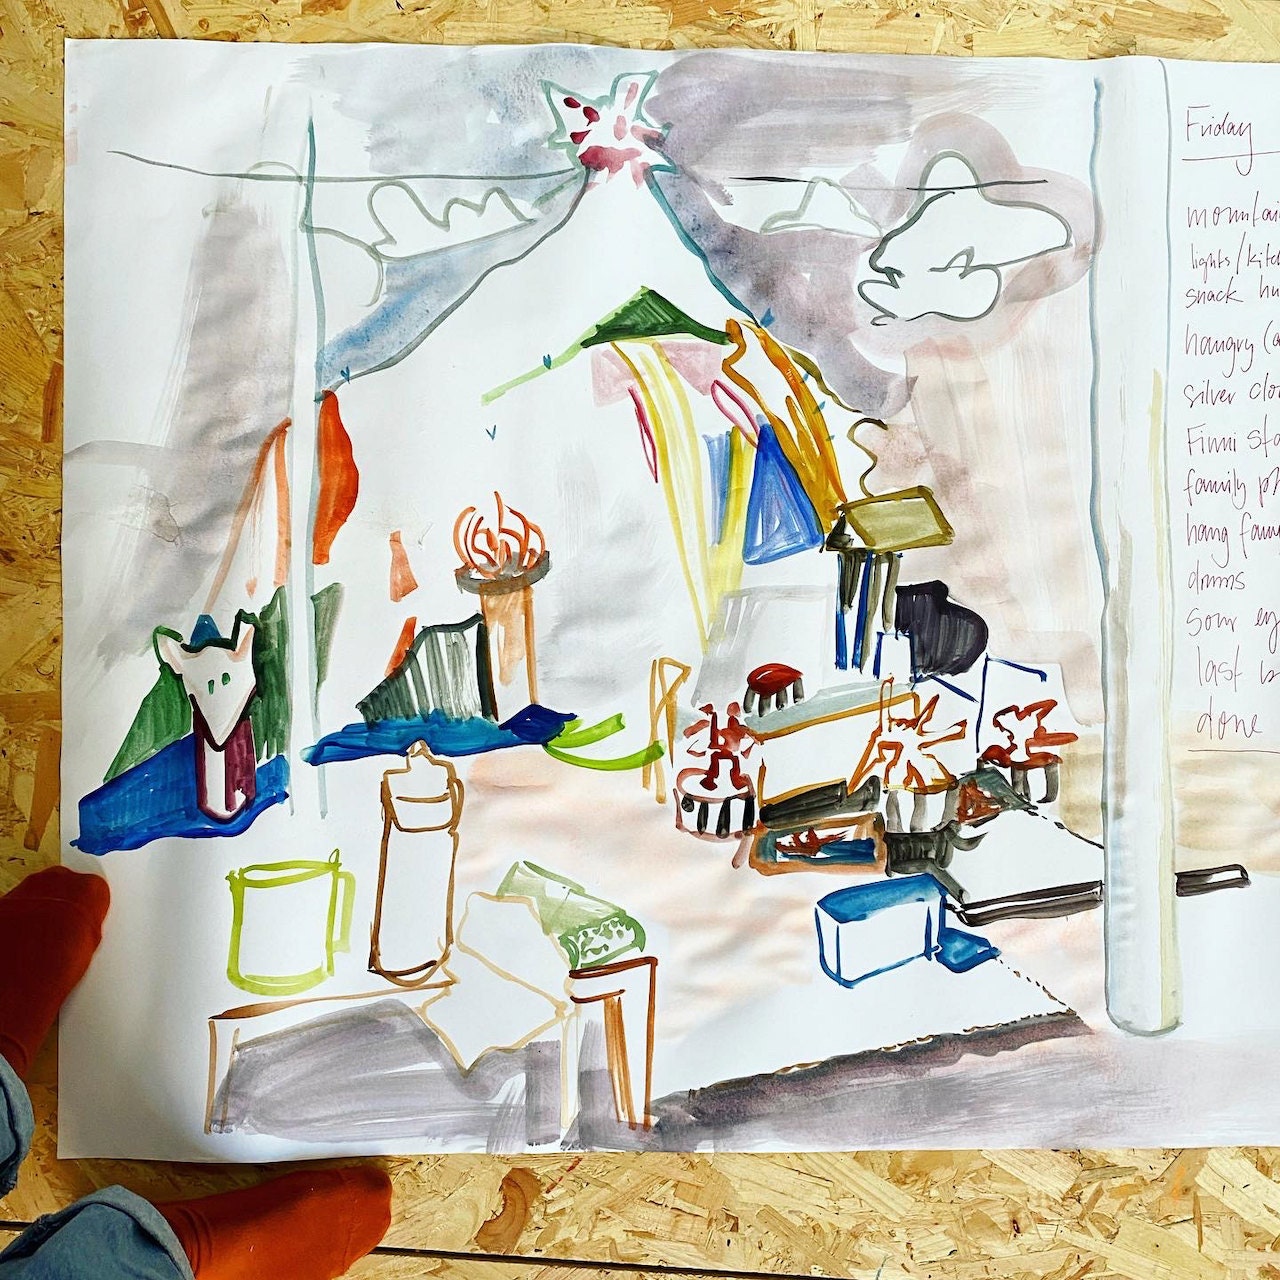 Friday
mountai
lights/kitc
snack hu
hangry (a
silver clo
Finni sta
family ph
hang fam
drums
sour ey
last b
done